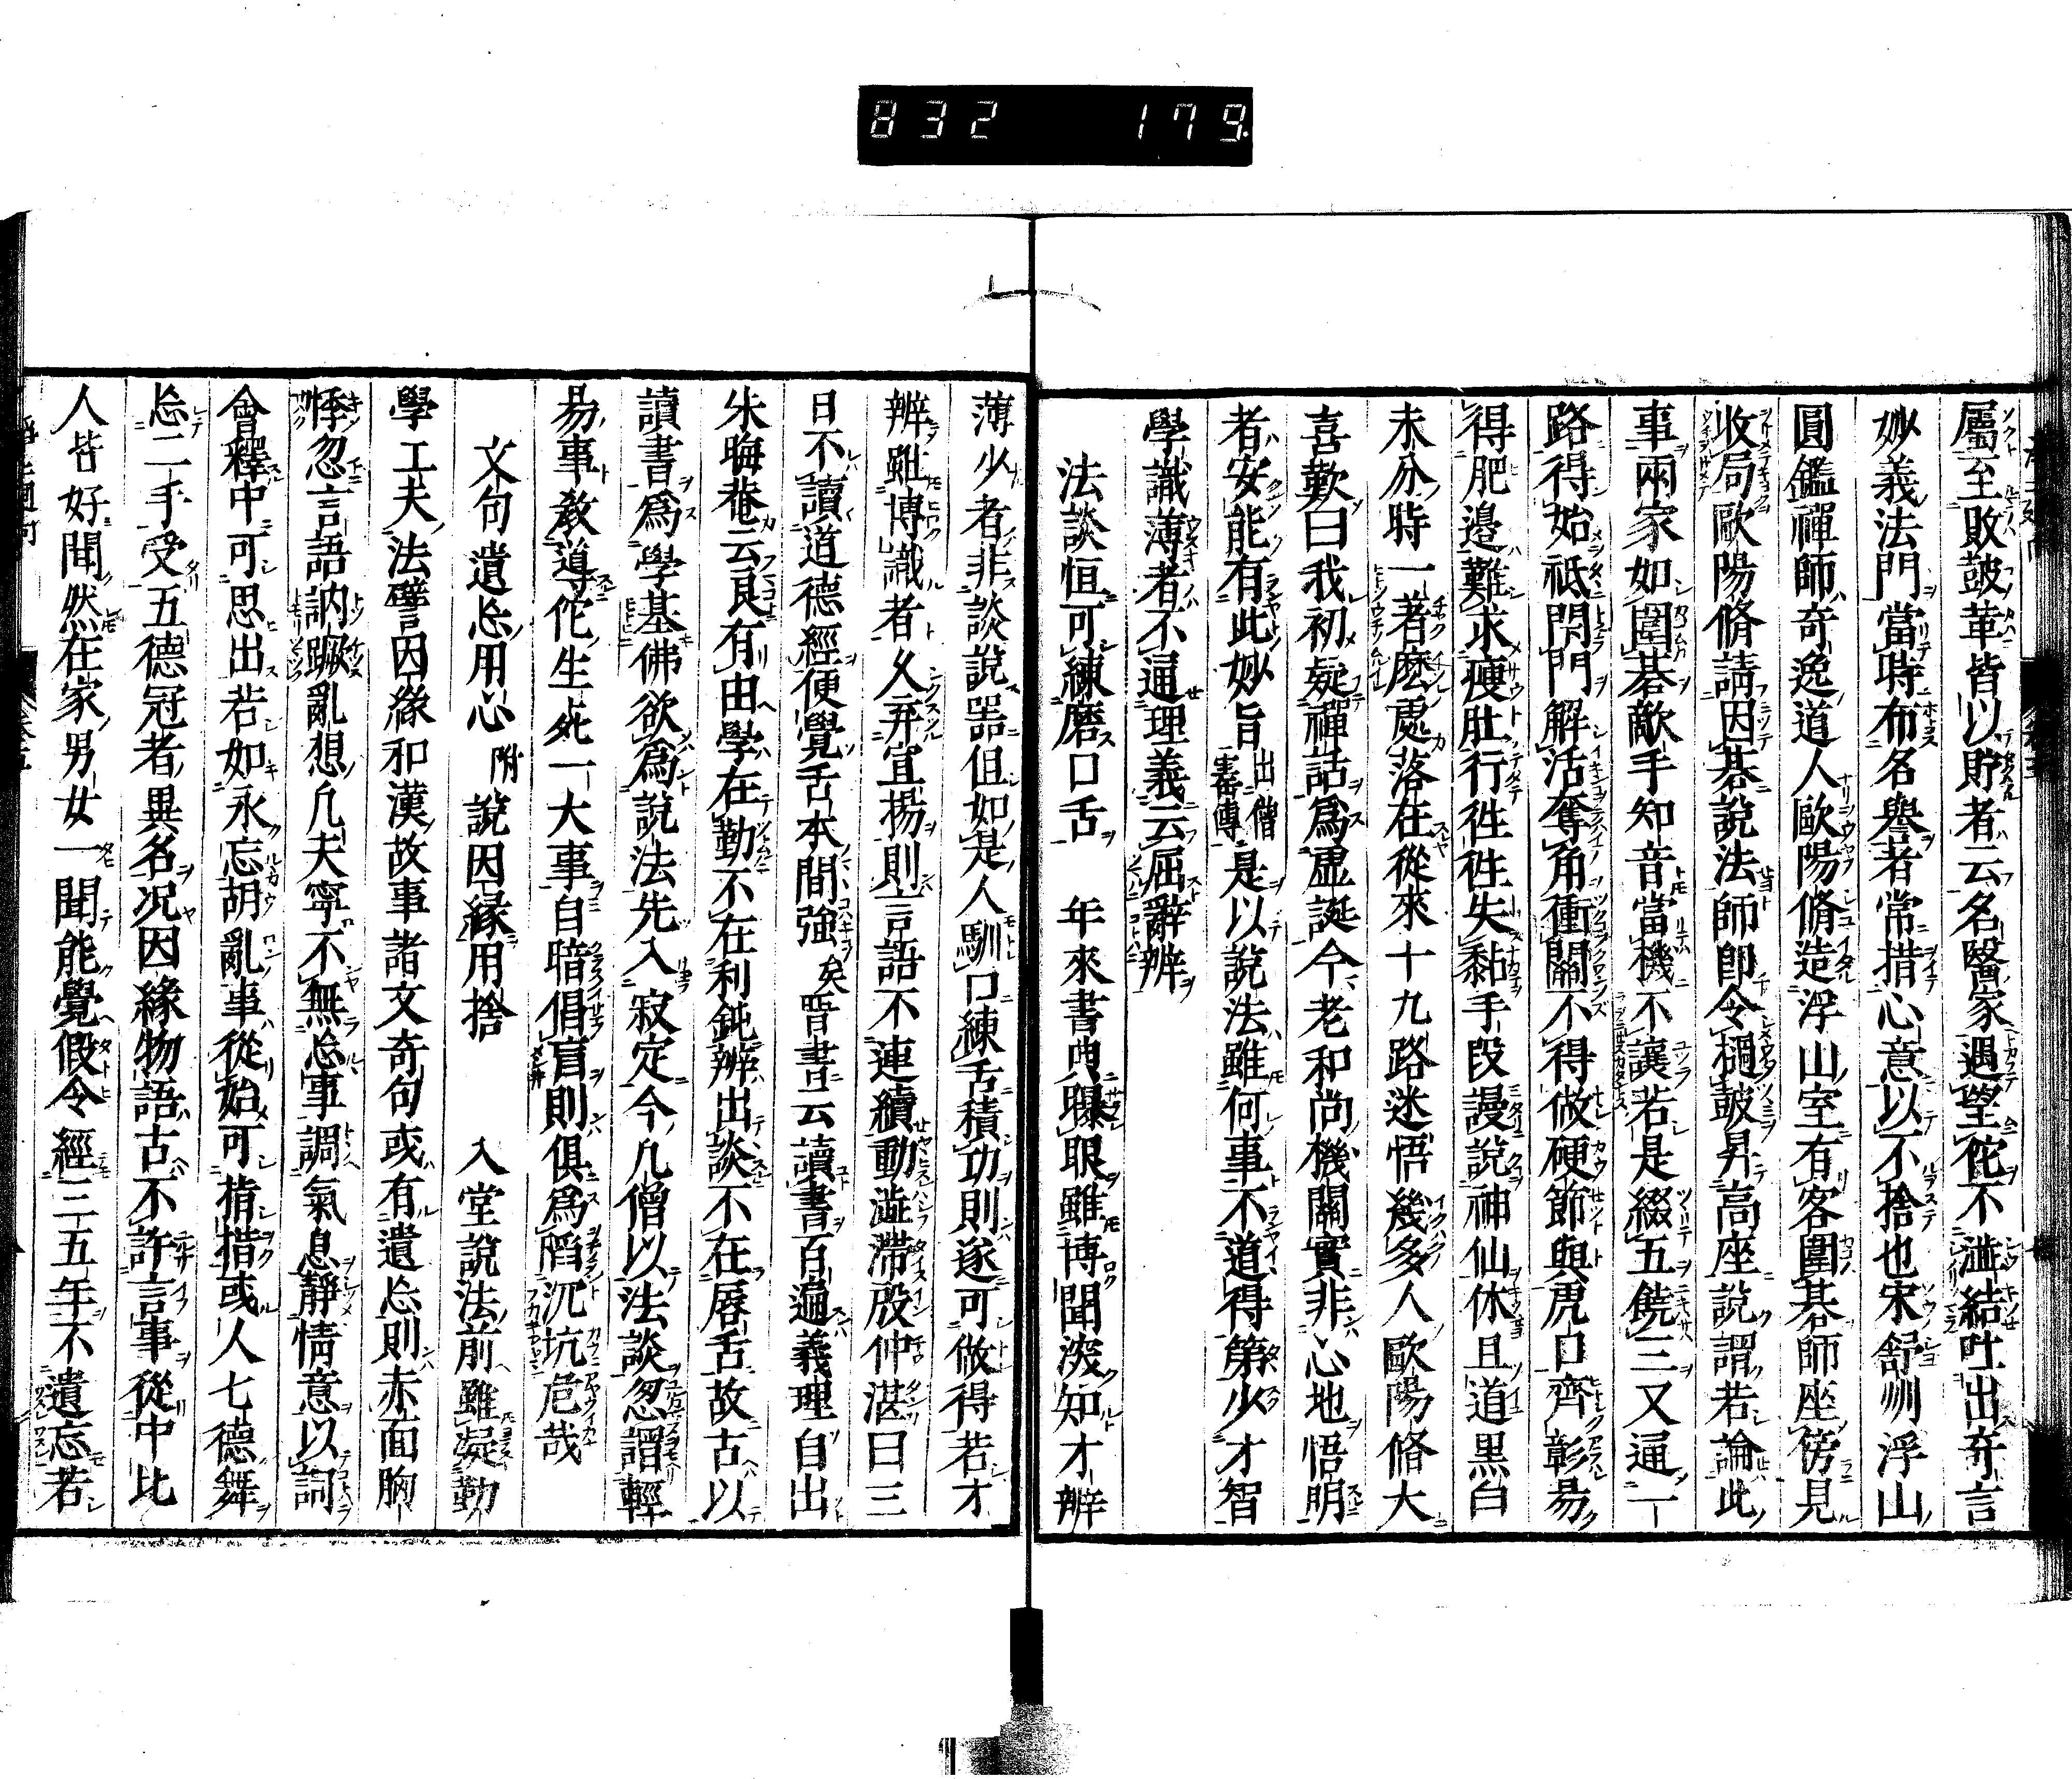 832 179
屬至敗鼓革皆以貯者云名醫家遇望佗不澁結吐出奇言
妙義法門當時布名譽者常措心意以不捨也宋舒洲浮山
圓鑑禪師奇逸道人歐陽脩造浮山室有客圍碁師座傍見
收局歐陽脩請因碁說法師即令檛鼓昇高座說謂若論此
事兩家如圍碁敵手知音當機不讓若是綴五饒三又通一
路得始祗閇門解活奪角衝關不得做硬節與虎口齊彰昜
得肥邊難求瘦肚行徃徃失黏手段謾說神仙休且道黑白
未分時一著麽處落在從來十九路迷悟幾多人歐陽脩大
喜歎曰我初疑禪話爲虛誕今老和尚機關實非心地悟明
者安能有此妙旨出僧寶傳是以說法雖何事不道得第少才智
學識薄者不通理義云屈辭辨
法談恒可練磨口舌 年來書典曝眼雖博聞深知才辨
薄少者非談說器但如是人馴口練舌積功則遂可做得若才
辨雖博識者久弃宣揚則言語不連續動澁滯殷仲湛曰三
日不讀道德經便覺舌本間強矣晉書云讀書百遍義理自出
朱晦菴云良有由學在勤不在利鈍辨出談不在唇舌故古以
讀書爲學基佛欲爲說法先入寂定今凡僧以法談忽謂輕
昜事教導佗生死一大事自暗倡盲則俱爲陷沉坑危哉
文句遺忘用心 附說因緣用捨 入堂說法前雖凝勤
學工夫法譬因緣和漢故事諸文奇句或有遺忘則赤面胸
悸忽言語訥蹶亂想凡夫寧不無忘事調氣息靜情意以詞
會釋中可思出若如永忘胡亂事從始可指措或人七德舞
忘二手受五德冠者異名况因緣物語古不許言事從中比
人皆好聞然在家男女一聞能覺假令經三五年不遺忘若